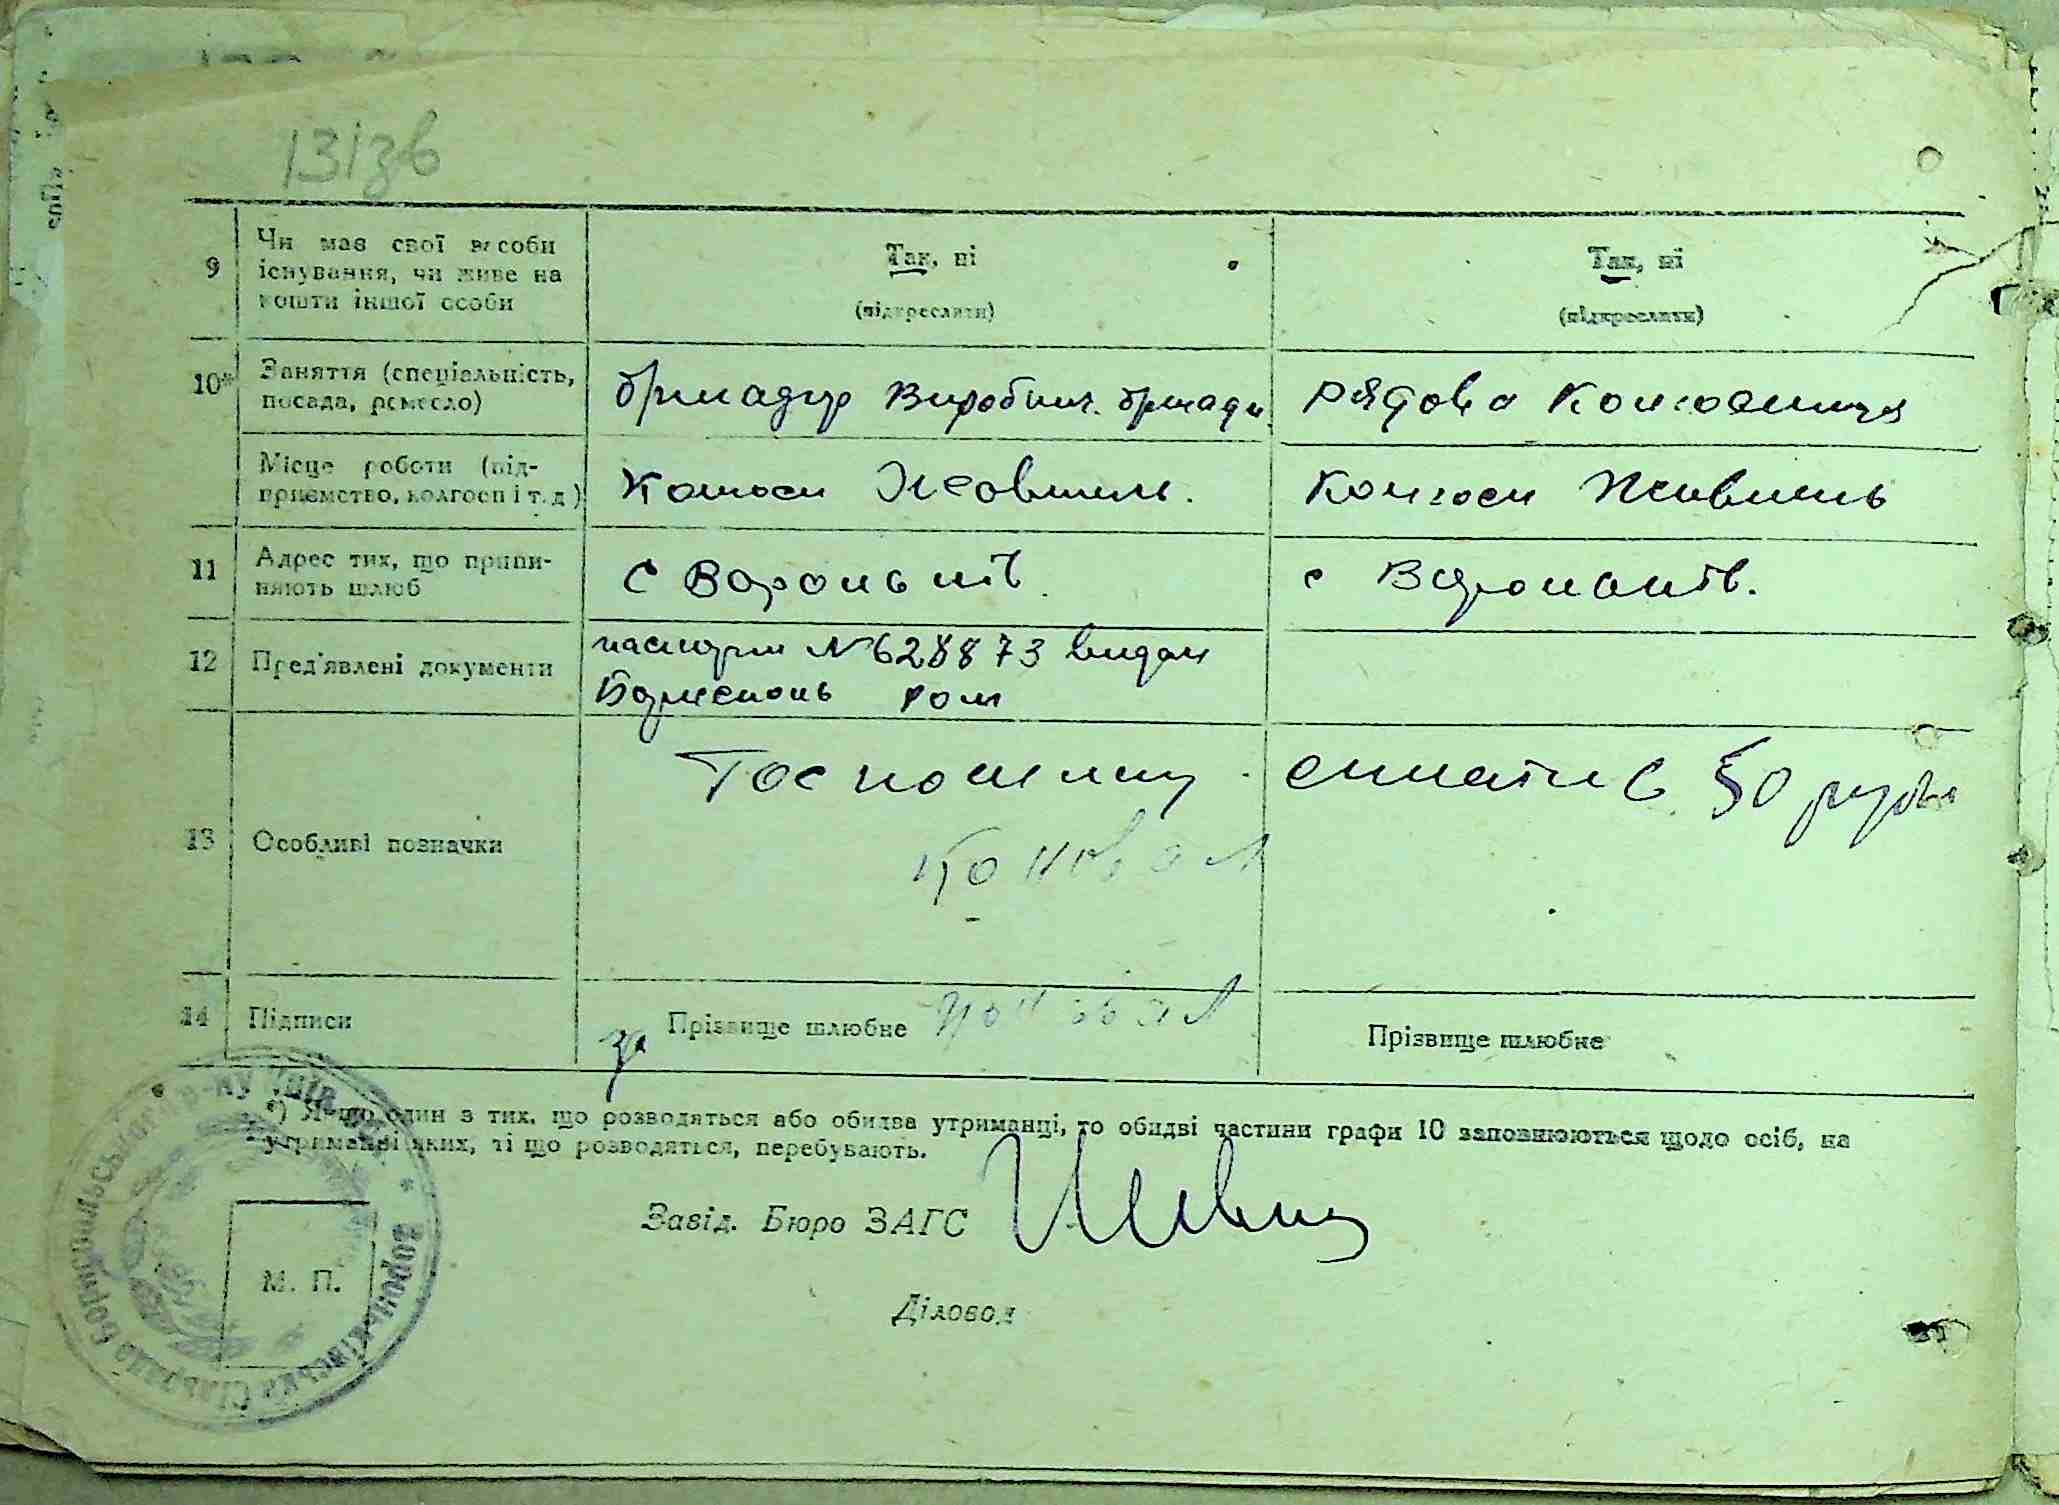 131зв
9 Чи має свої засоби існування, чи живе на кошти іншої особи
Так, ні
(підкреслити)
Так, ні
(підкреслити)
10* Заняття (спеціальність, посада, ремесло)
бригадир виробнич. бригади
рядова колгоспниця
Місце роботи (підприємство, колгосп і т. д.)
колгосп Жовтень.
колгосп Жовтень
11 Адрес тих, що припиняють шлюб
с Вороньків
с Вороньків.
12 Пред'явлені документи
паспорт № 628873 видан
Бориспонь ром
13 Особливі позначки
Госпошлину сплатив 50 руб
Коновал
14 Підписи
за Прізвище шлюбне Коновал
Прізвище шлюбне
*) Якщо один з тих, що розводяться або обидва утриманці, то обидві частини графи 10 заповнюються щодо осіб, на
утриманні яких, ті що розводяться, перебувають.
Завід. Бюро ЗАГС
Діловод
М. П.
Вороньківська Сільрада Бориспільського р-ну Київ